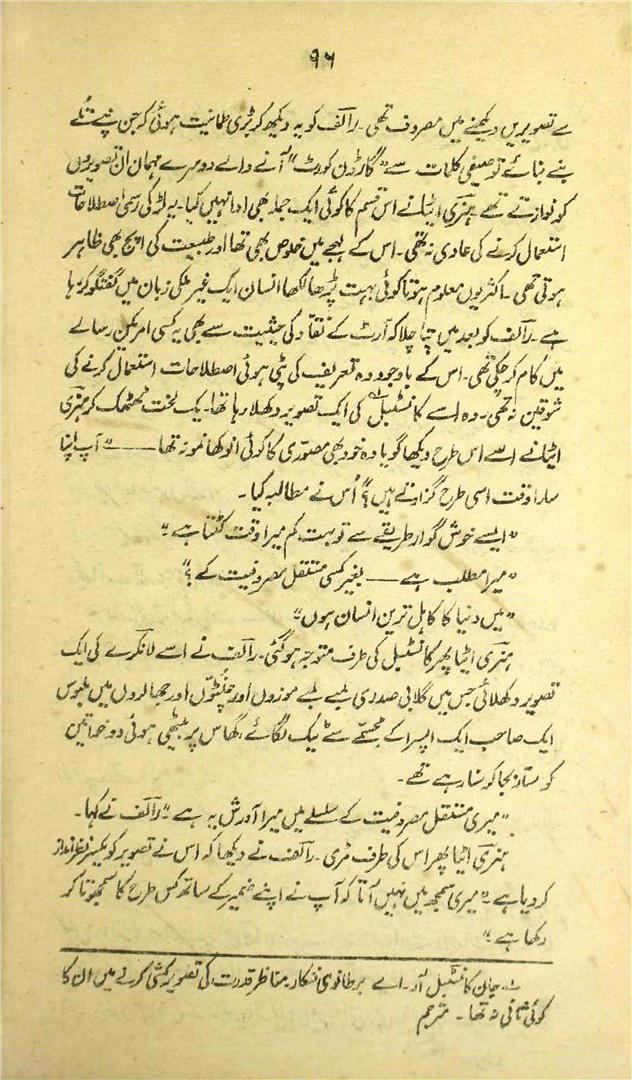 ۹۶
سے تصویریں دیکھنے میں مصروف تھی۔ رالف کو یہ دیکھ کر بڑی طمانیت ہوئی کہ جن نپے تُلے
بنے بنائے توصیفی کلمات سے "گارڈن کورٹ" آنے والے دوسرے مہمان ان تصویروں
کو نوازتے تھے ہنری ایٹا نے اس قسم کا کوئی ایک جملہ بھی ادا نہیں کیا۔ یہ لڑکی رسمی اصطلاحات
استعمال کرنے کی عادی نہ تھی۔ اس کے لہجے میں خلوص بھی تھا اور طبیعت کی اپج بھی ظاہر
ہوتی تھی۔ اکثر یوں معلوم ہوتا کوئی بہت پڑھا لکھا انسان ایک غیر ملکی زبان میں گفتگو کر رہا
ہے۔ رالف کو بعد میں پتا چلا کہ آرٹ کے نقاد کی حیثیت سے بھی یہ کسی امریکن رسالے
میں کام کر چکی تھی۔ اس کے باوجود وہ تعریف کی پٹی ہوئی اصطلاحات استعمال کرنے کی
شوقین نہ تھی۔ وہ اسے کانسٹبل؎ کی ایک تصویر دکھلا رہا تھا۔ یک لخت ٹھٹھک کر ہنری
ایٹا نے اسے اس طرح دیکھا گویا وہ خود بھی مصوّری کا کوئی انوکھا نمونہ تھا —— "آپ اپنا
سارا وقت اسی طرح گزارتے ہیں؟" اُس نے مطالبہ کیا۔
"ایسے خوش گوار طریقے سے تو بہت کم میرا وقت کٹتا ہے۔"
"میرا مطلب ہے —— بغیر کسی مستقل مصروفیت کے؟"
"میں دنیا کا کاہل ترین انسان ہوں"
ہنری ایٹا پھر کانسٹبل کی طرف متوجہ ہو گئی۔ رالف نے اسے لانکرے کی ایک
تصویر دکھلائی جس میں گلابی صدری لمبے لمبے موزوں اور چنٹوں اور جھالروں میں ملبوس
ایک صاحب ایک اپسرا کے مجسّمے سے ٹیک لگائے، گھاس پر بیٹھی ہوئی دو خواتین
کو ستار بجا کر سنا رہے تھے۔
"میری مستقل مصروفیت کے سلسلے میں میرا آدرش یہ ہے" رالف نے کہا۔
ہنری ایٹا پھر اس کی طرف مُڑی۔ رالف نے دیکھا کہ اس نے تصویر کو یکسر نظر انداز
کر دیا ہے۔ "میری سمجھ میں نہیں آتا کہ آپ نے اپنے ضمیر کے ساتھ کس طرح کا سمجھوتا کر
رکھا ہے۔"
؎ جان کانسٹبل آر۔ اے برطانوی فنکار۔ مناظرِ قدرت کی تصویر کشی کرنے میں ان کا
کوئی ثانی نہ تھا۔ مترجم